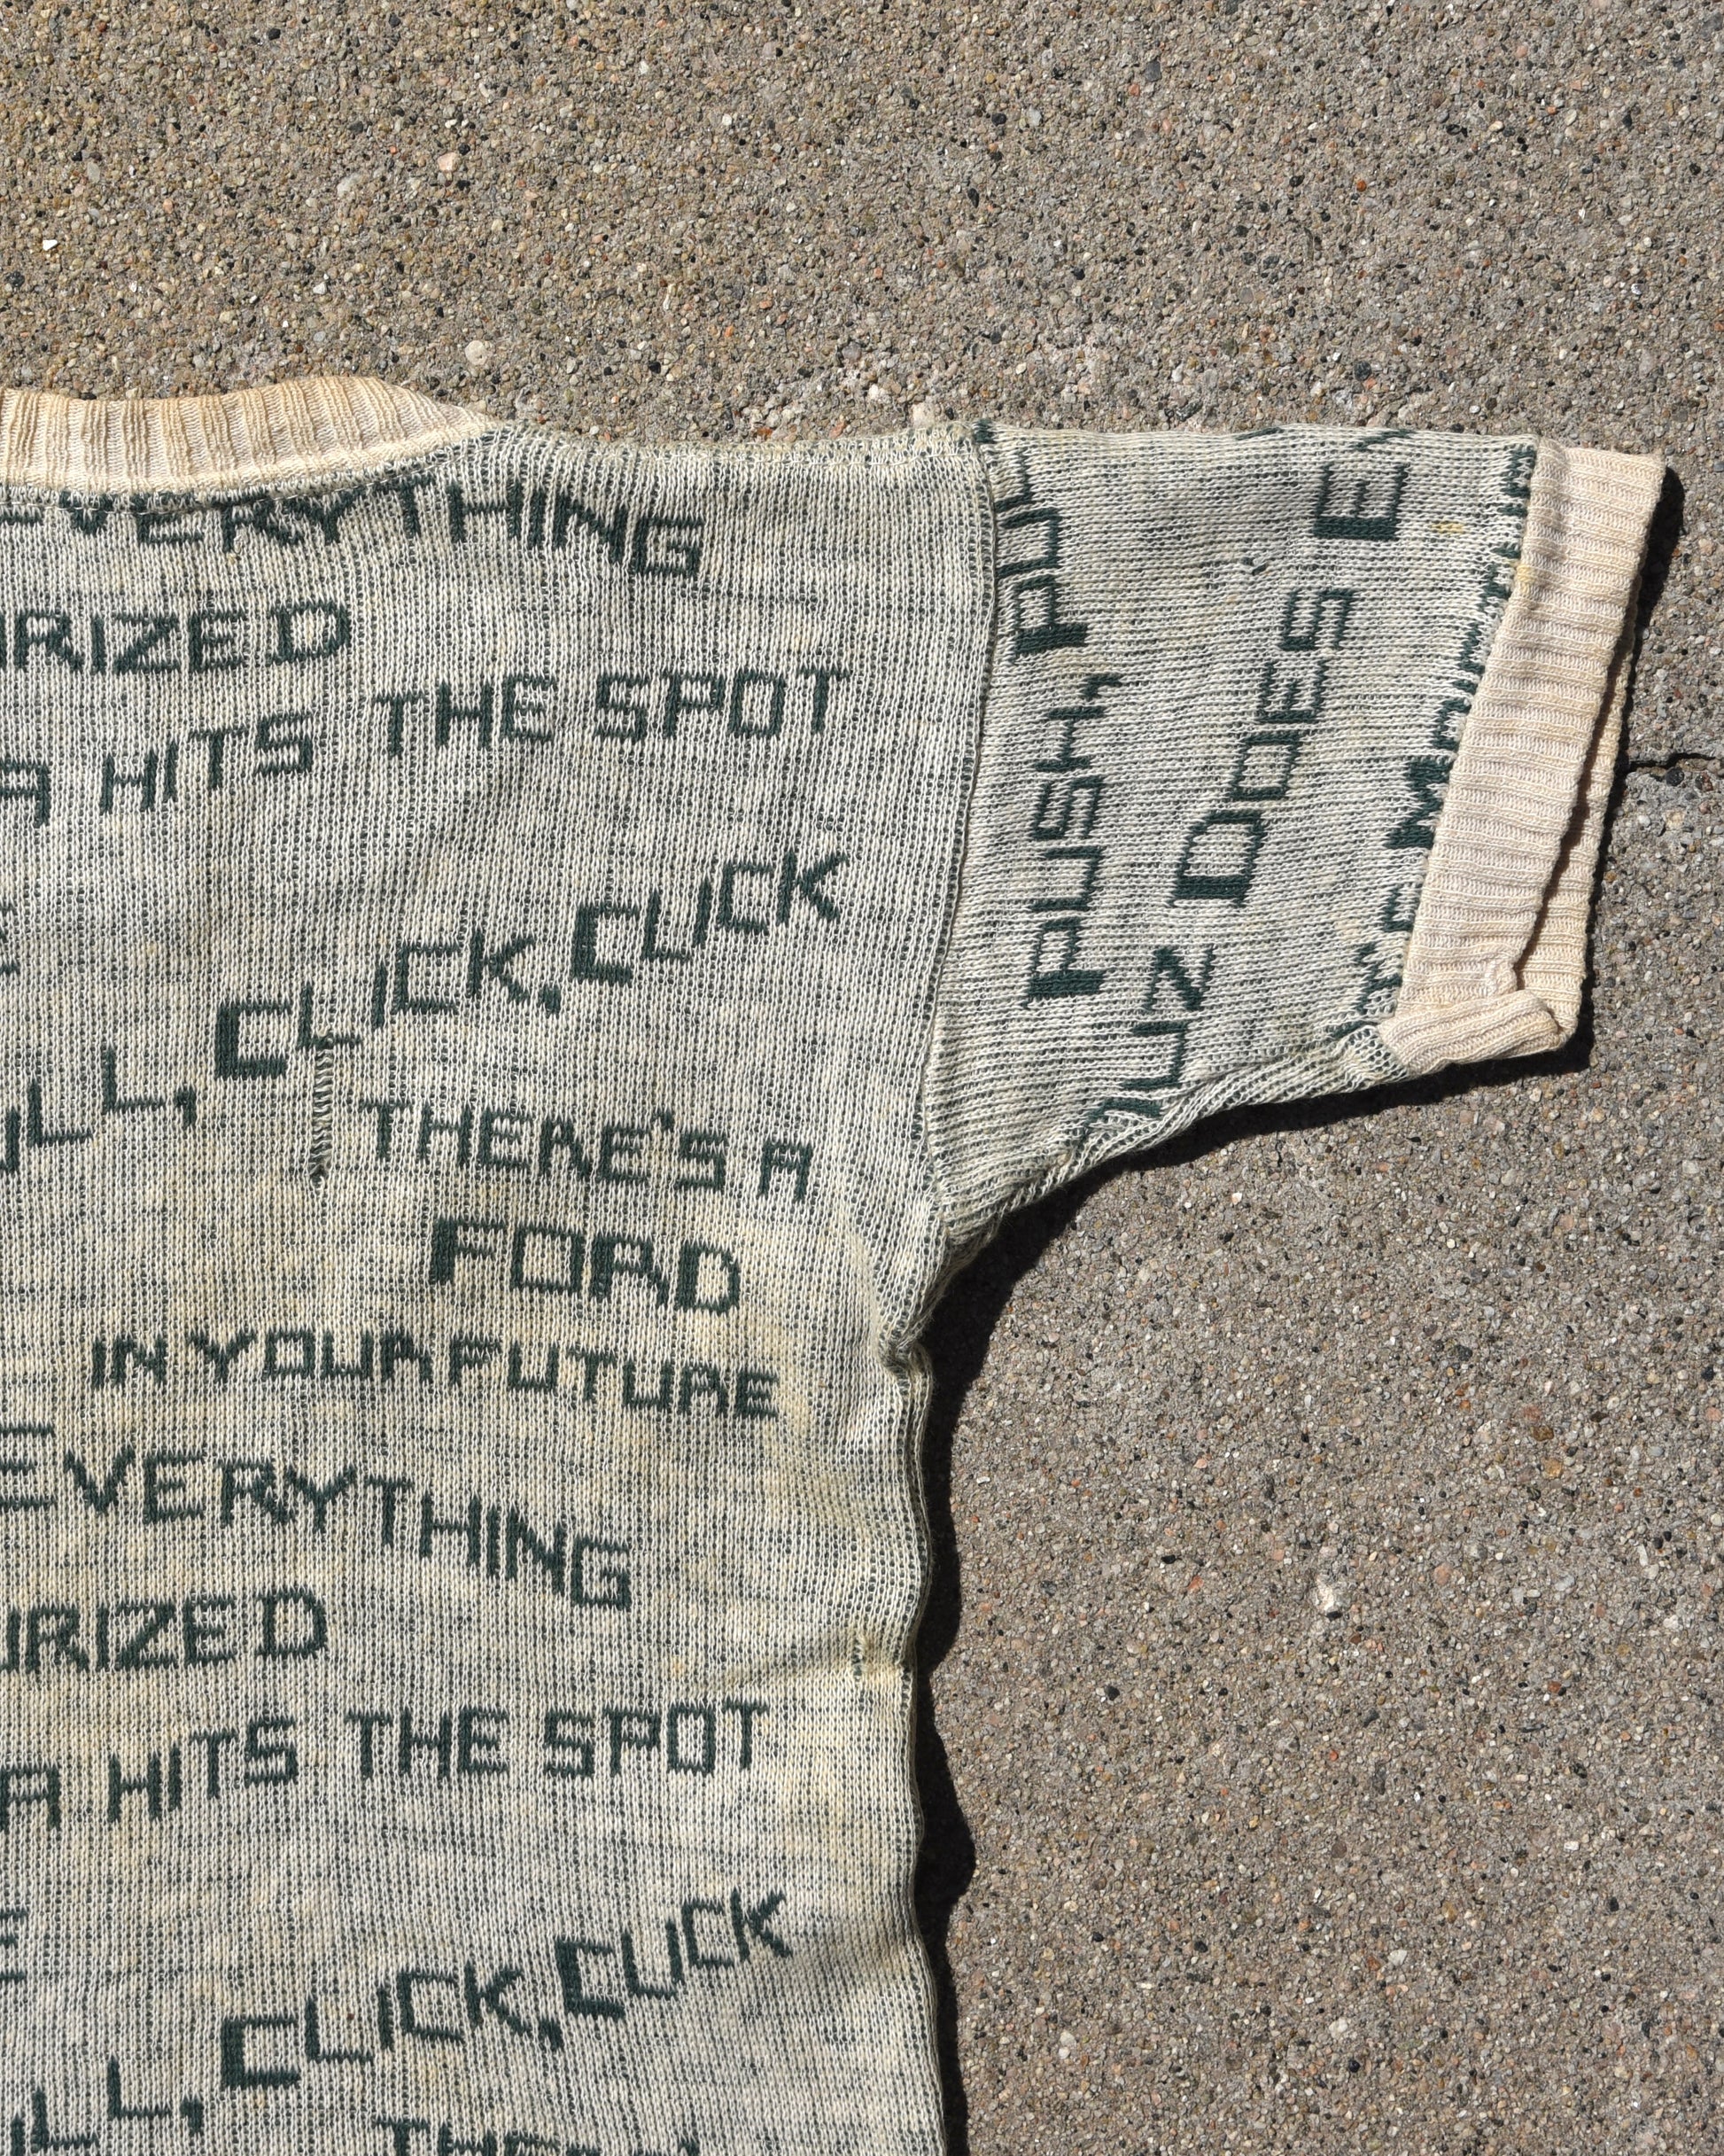 EVERYTHING
RIZED
A HITS THE SPOT
L, CLICK, CLICK
THERE'S A
FORD
IN YOUR FUTURE
EVERYTHING
RIZED
A HITS THE SPOT
L, CLICK, CLICK
PUSH, PUL
DUZ DOES E